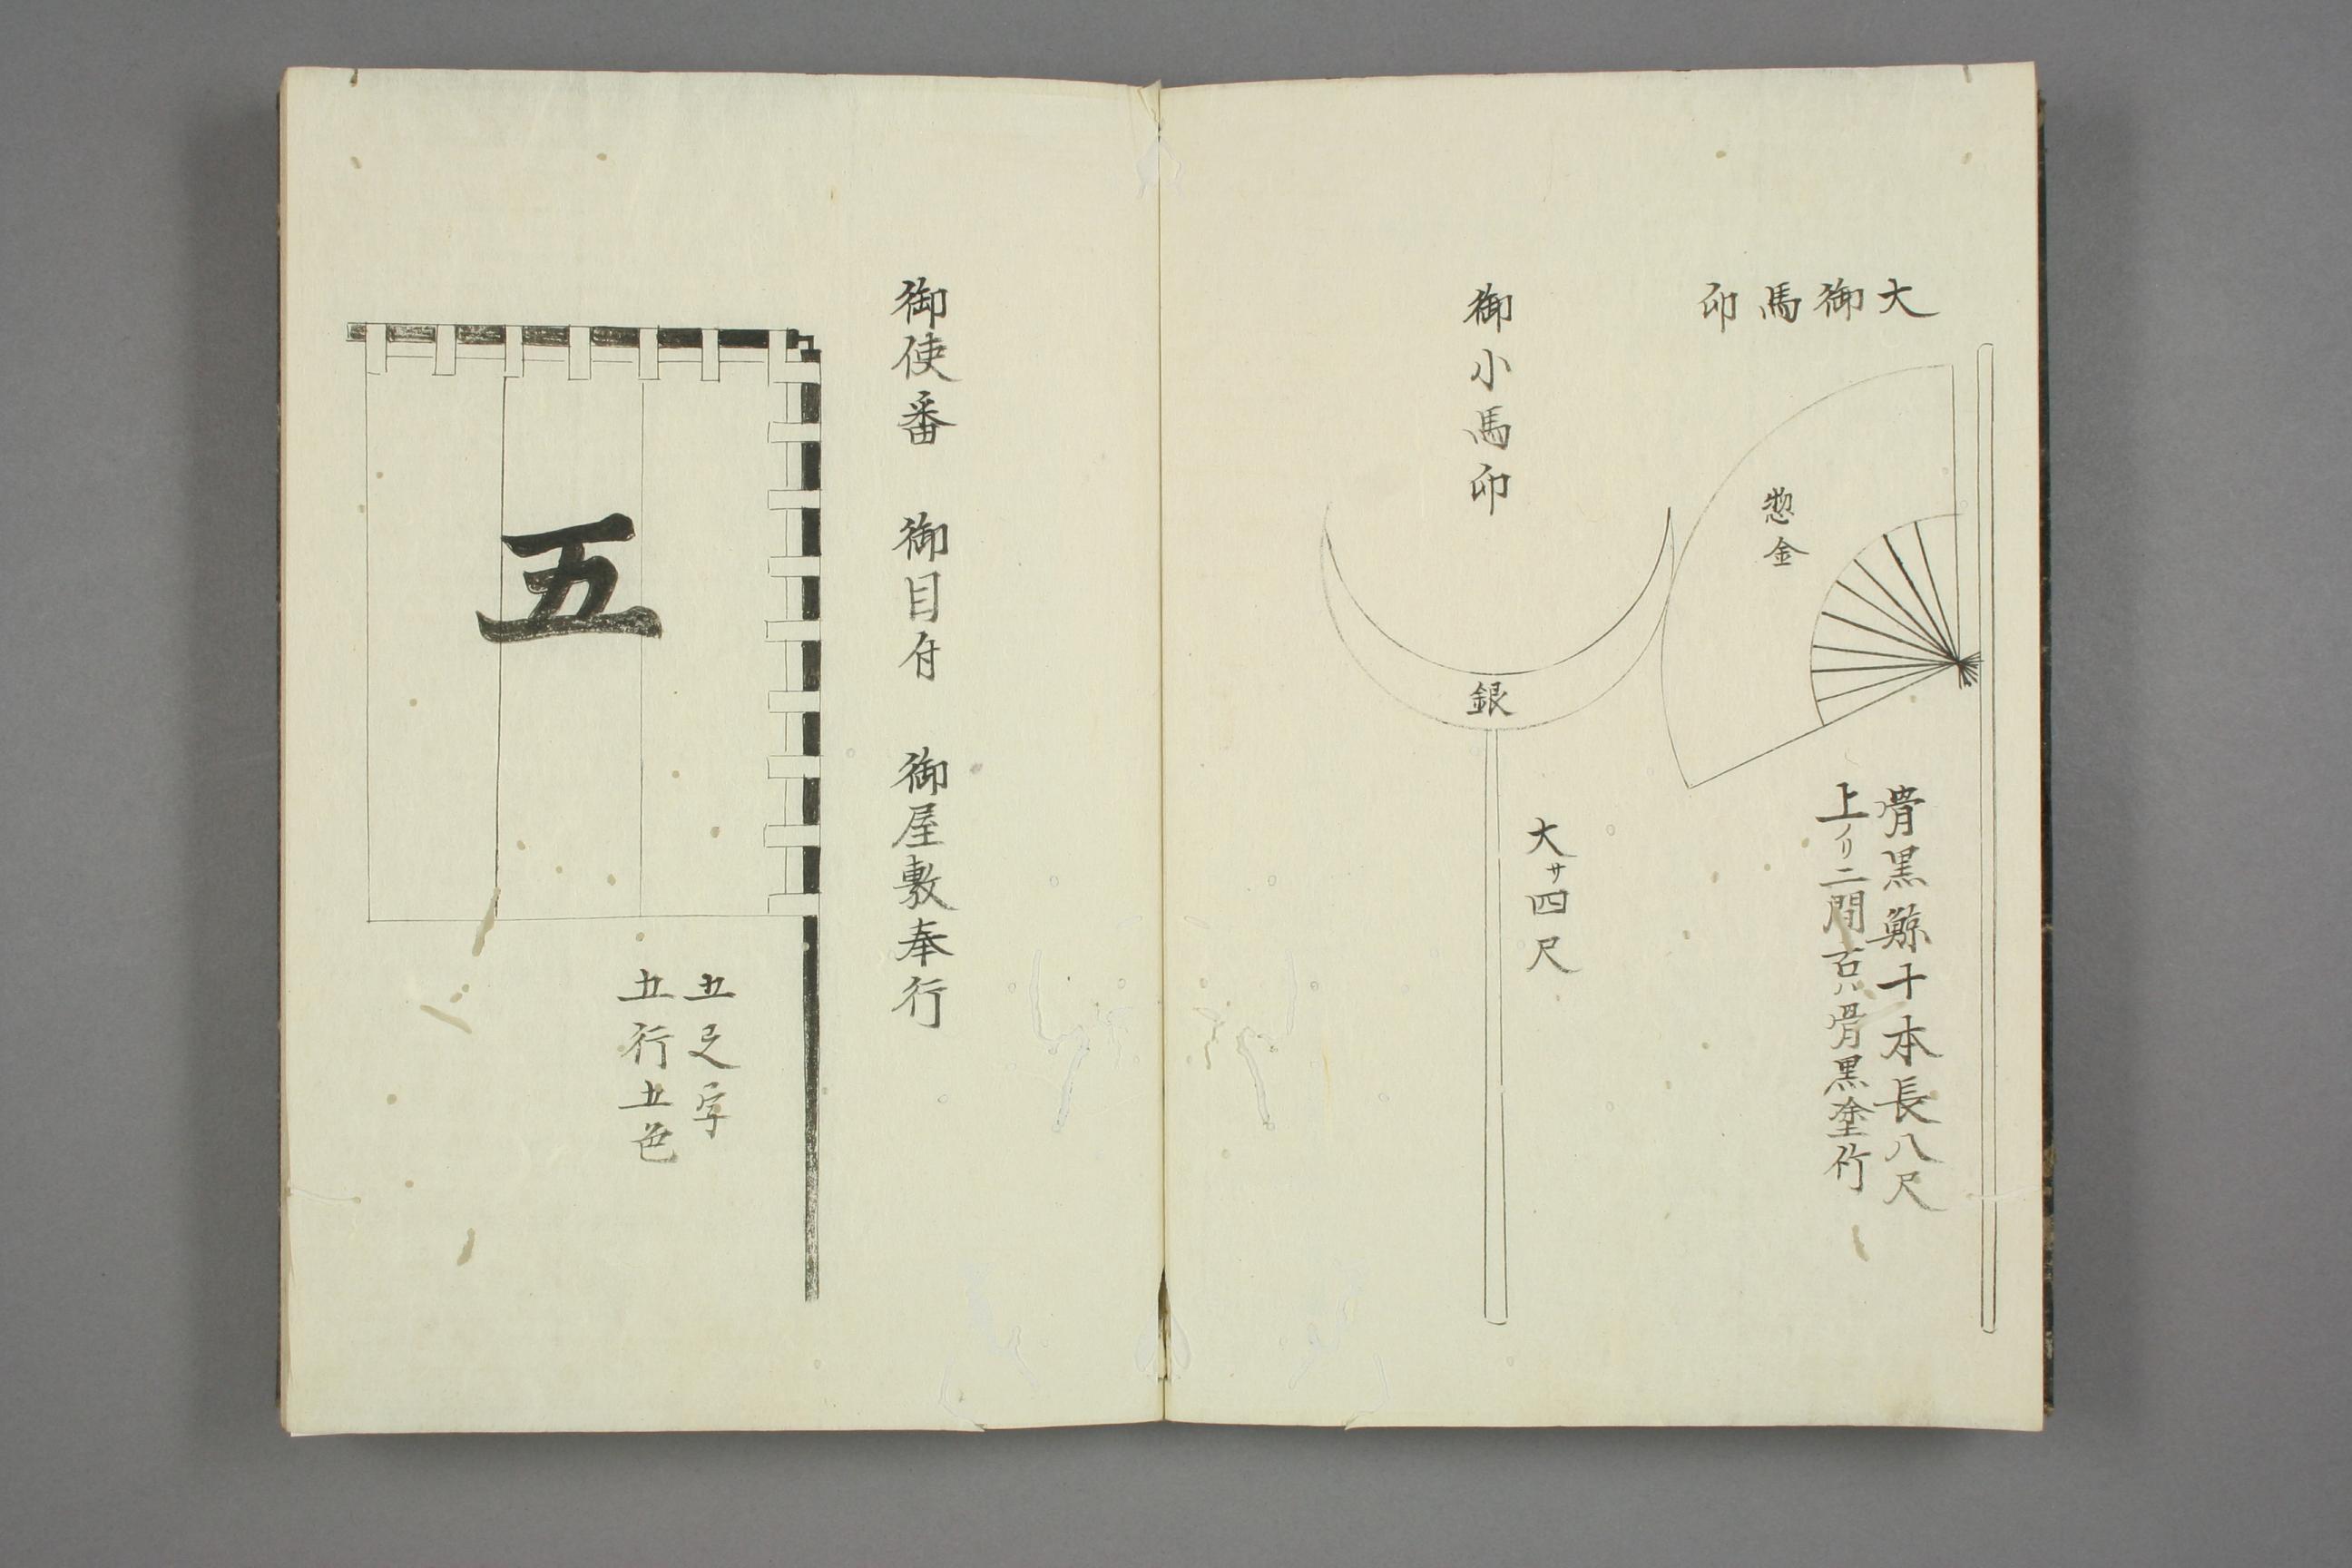 大御馬印
惣金
骨黒鯨十本長八尺
上ノリ二間古ハ骨黒塗竹
御小馬印
銀
大サ四尺
御使番 御目付 御屋敷奉行
五
五字
五行五色